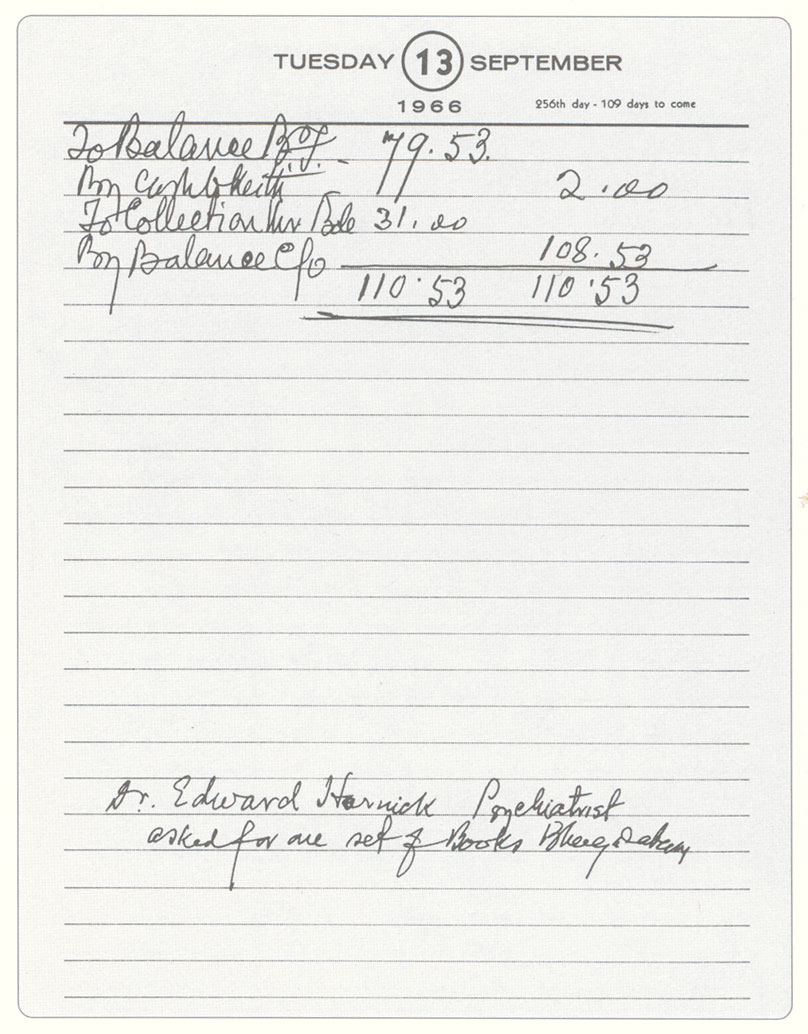 TUESDAY 13 SEPTEMBER
1966 256th day - 109 days to come
To Balance B/f. 79.53.
By Cash to Keith 2.00
To Collection 31.00
By Balance C/o 108.53
110.53 110.53
Dr. Edward Hornick Psychiatrist
asked for one set of Books Bhagwatam